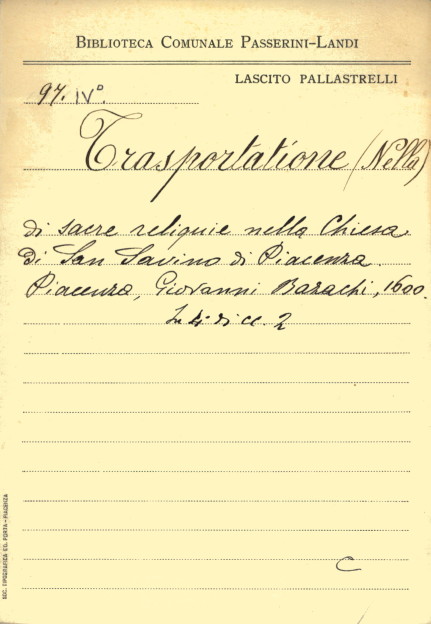 BIBLIOTECA COMUNALE PASSERINI-LANDI
LASCITO PALLASTRELLI
97. IVº.
Trasportatione (Nella)
di sacre reliquie nella Chiesa
di San Savino di Piacenza.
Piacenza, Giovanni Bazachi, 1600.
In 4º di cc. 2
C
SOC. TIPOGRAFICA ED. PORTA - PIACENZA